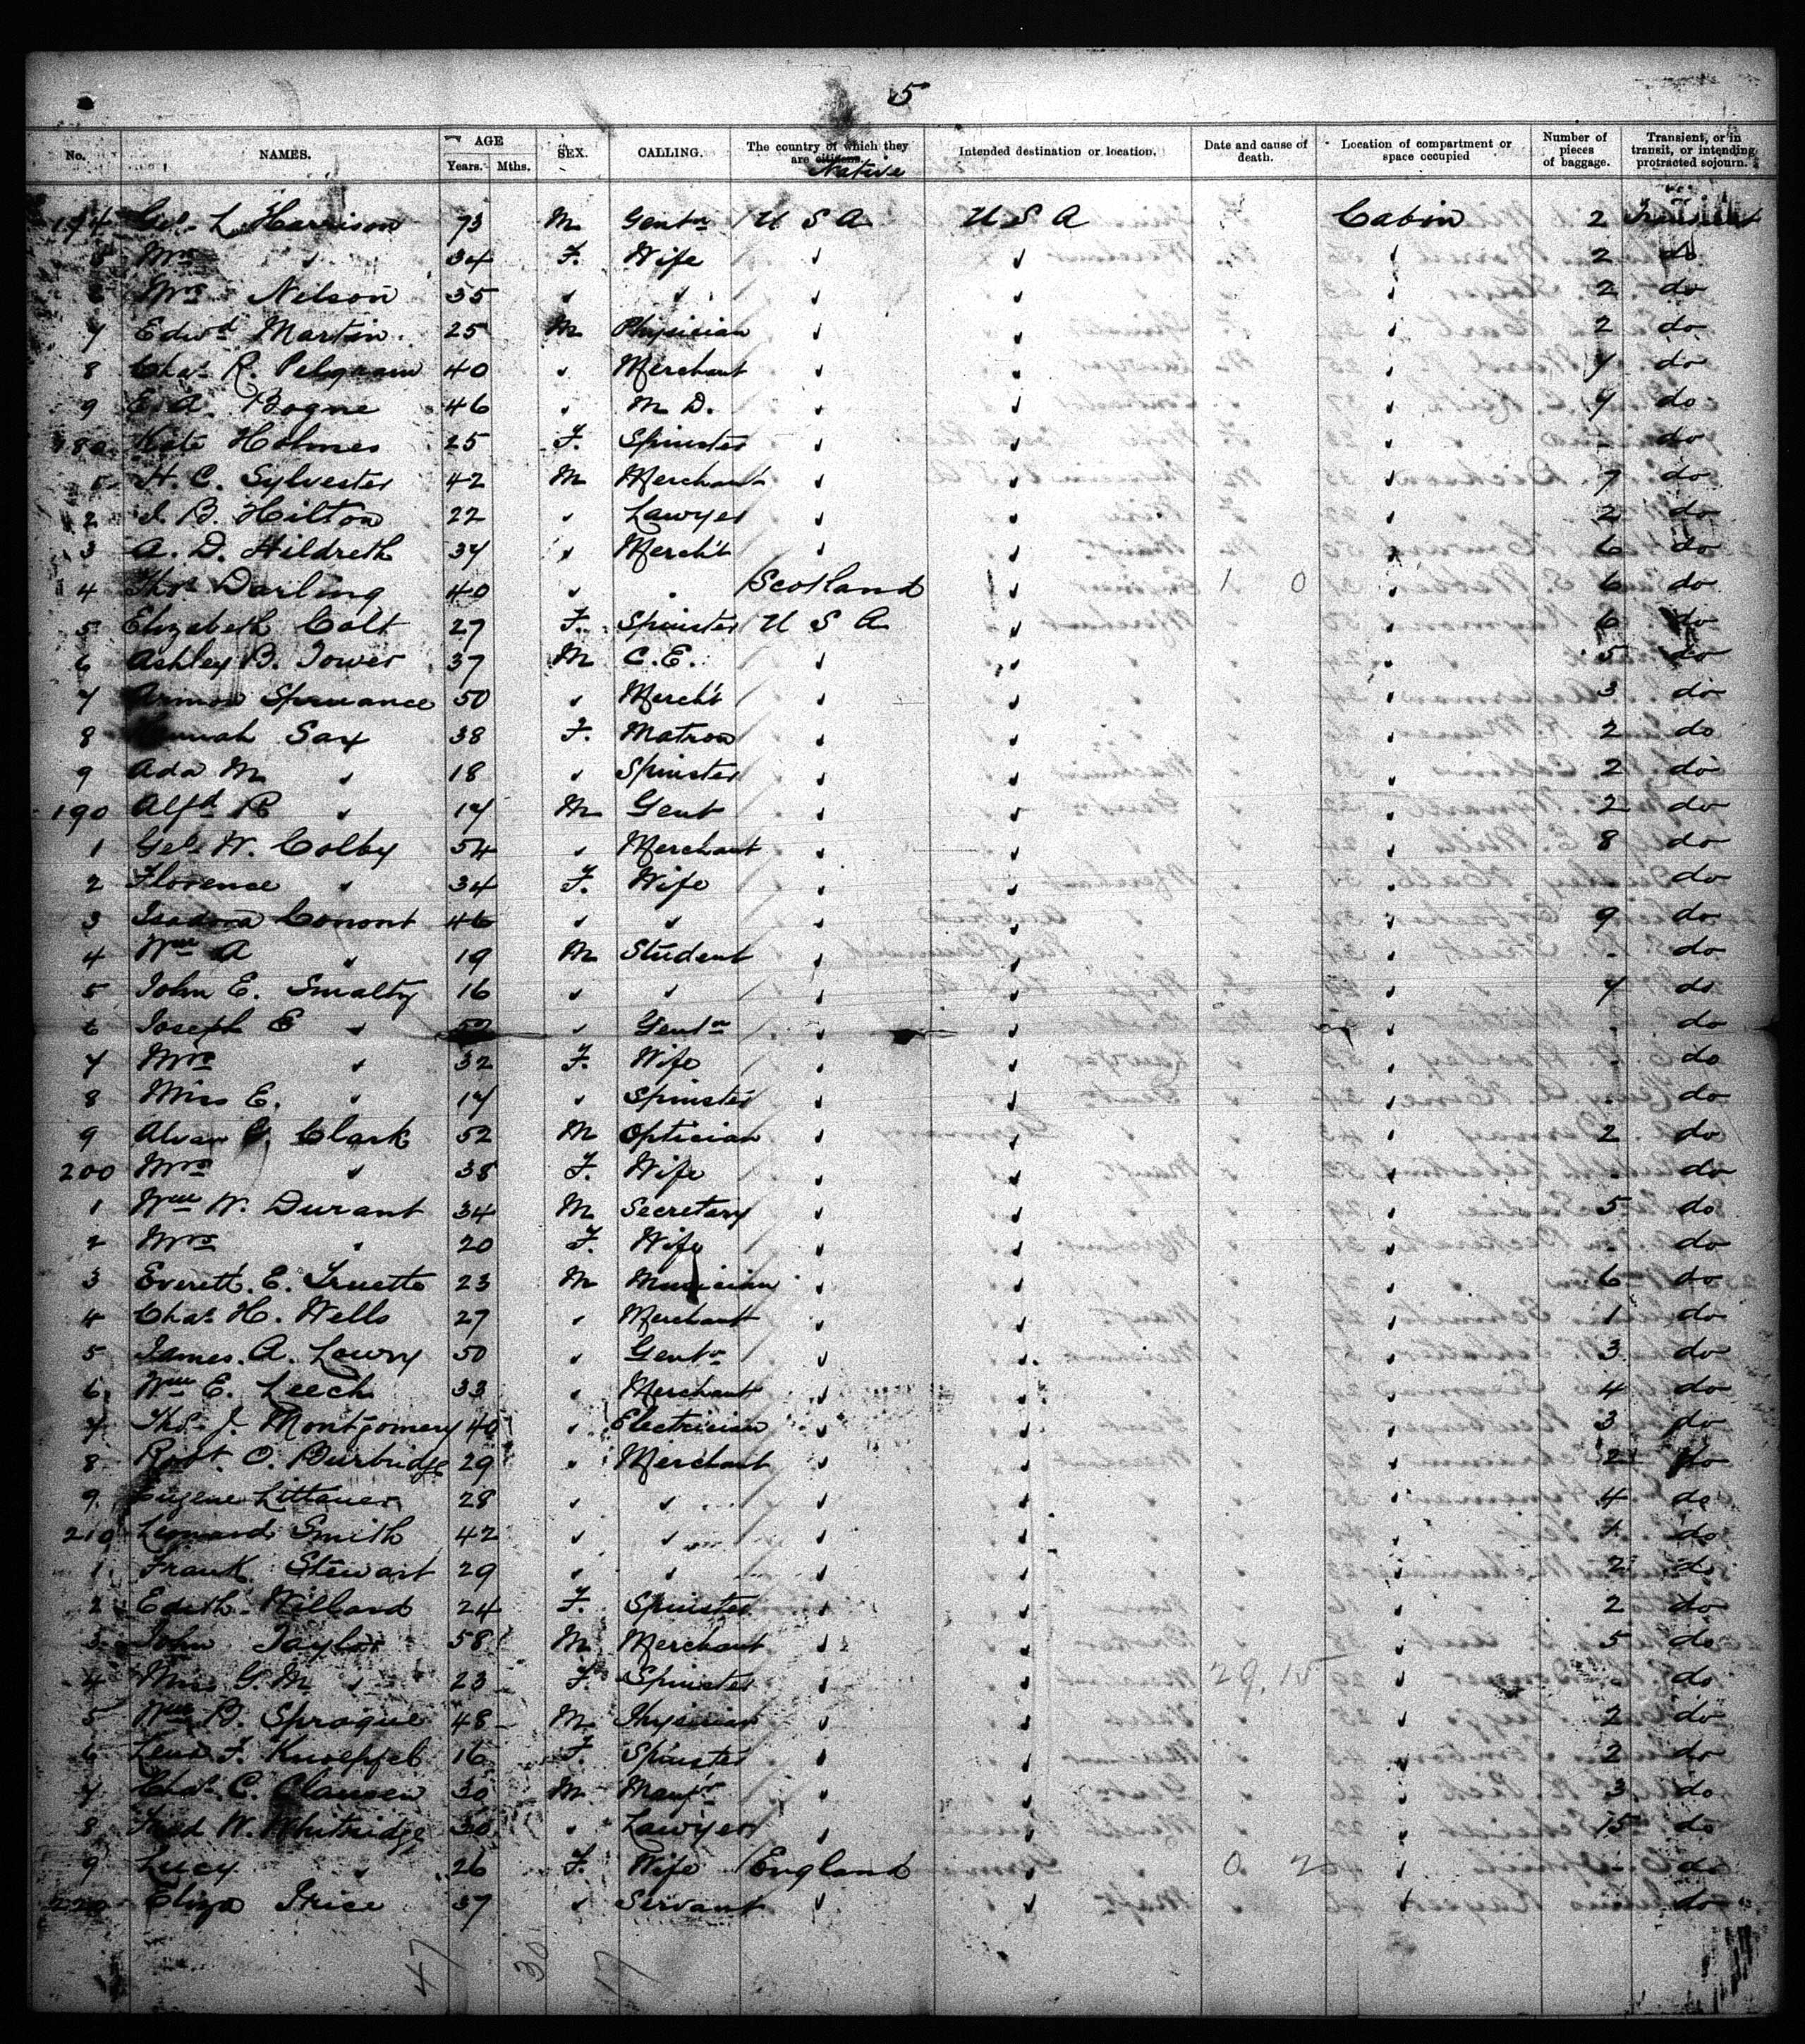 5
No. NAMES. AGE Years. Mths. SEX. CALLING. The country of which they are citizens. Native Intended destination or location. Date and cause of death. Location of compartment or space occupied Number of pieces of baggage. Transient, or in transit, or intending protracted sojourn.
Geo. L Harrison 73 M Gentn U S A U S A Cabin 2 Transient
Mrs " 34 F. Wife " " " 2 do
Mrs Nelson 35 " " " " " 2 do
7 Edwd Martin 25 M Physician " " " 2 do
8 Chas R. 40 " Merchant " " " 4 do
9 E. A. Bogue 46 " M D. " " " 4 do
180 Kate Holmes 25 F. Spinster " " " - do
1 H. C. Sylvester 42 M Merchant " " " 7 do
2 J. B. Hilton 22 " Lawyer " " " 2 do
3 A. D. Hildreth 34 " Mercht " " " 6 do
4 Thos Darling 40 " " Scotland " 1 0 " 6 do
5 Elizabeth Colt 27 F. Spinster U S A " " 6 do
6 Ashley B. Tower 37 M C.E. " " " 5 do
7 Spruance 50 " Mercht " " " 3 do
8 Hannah Sax 38 F. Matron " " " 2 do
9 Ada M " 18 " Spinster " " " 2 do
190 Alfd R " 14 M Gent " " " 2 do
1 Geo W. Colby 54 " Merchant " " " 8 do
2 Florence " 34 F. Wife " " " do
3 Isadora Conont 46 " " " " " 9 do
4 Wm A " 19 M Student " " " - do
5 John E. Smalty 16 " " " " " 4 do
6 Joseph E " " Gentn " " " do
7 Mrs " 32 F. Wife " " " - do
8 Miss E. " 14 " Spinster " " " - do
9 Alvan G. Clark 52 M Optician " " " 2 do
200 Mrs " 38 F. Wife " " " - do
1 Wm W. Durant 34 M Secretary " " " 5 do
2 Mrs " 20 F. Wife " " " - do
3 Everett. E. Truette 23 M Musician " " " 6 do
4 Chas H. Wells 27 " Merchant " " " 1 do
5 James. A. Lowry 50 " Gentn " " " 3 do
6 Wm E. Leech 33 " Merchant " " " 4 do
7 Thos. J. Montgomery 40 " Electrician " " " 3 do
8 Robt. O. Burbridge 29 " Merchant " " " 2 do
9 Eugene Littauer 28 " " " " " 4 do
210 Leonard Smith 42 " " " " " do
1 Frank Stewart 29 " " " " " 2 do
2 Edith Willard 24 F. Spinster " " " 2 do
3 John Taylor 58 M Merchant " " " 5 do
4 Miss G. M " 23 F Spinster " " 29.15 " - do
5 Wm B. Sprague 48 M Physician " " " 2 do
6 Lena F. Knoepfel 16 F. Spinster " " " 2 do
7 Chas. C. Clausen 30 M Manfr " " " 3 do
8 Fred W. Whitridge 30 " Lawyer " " " 15 do
9 Lucy " 26 F. Wife England " 0 2 " - do
220 Eliza Price 37 " Servant " " " - do
47 30 17